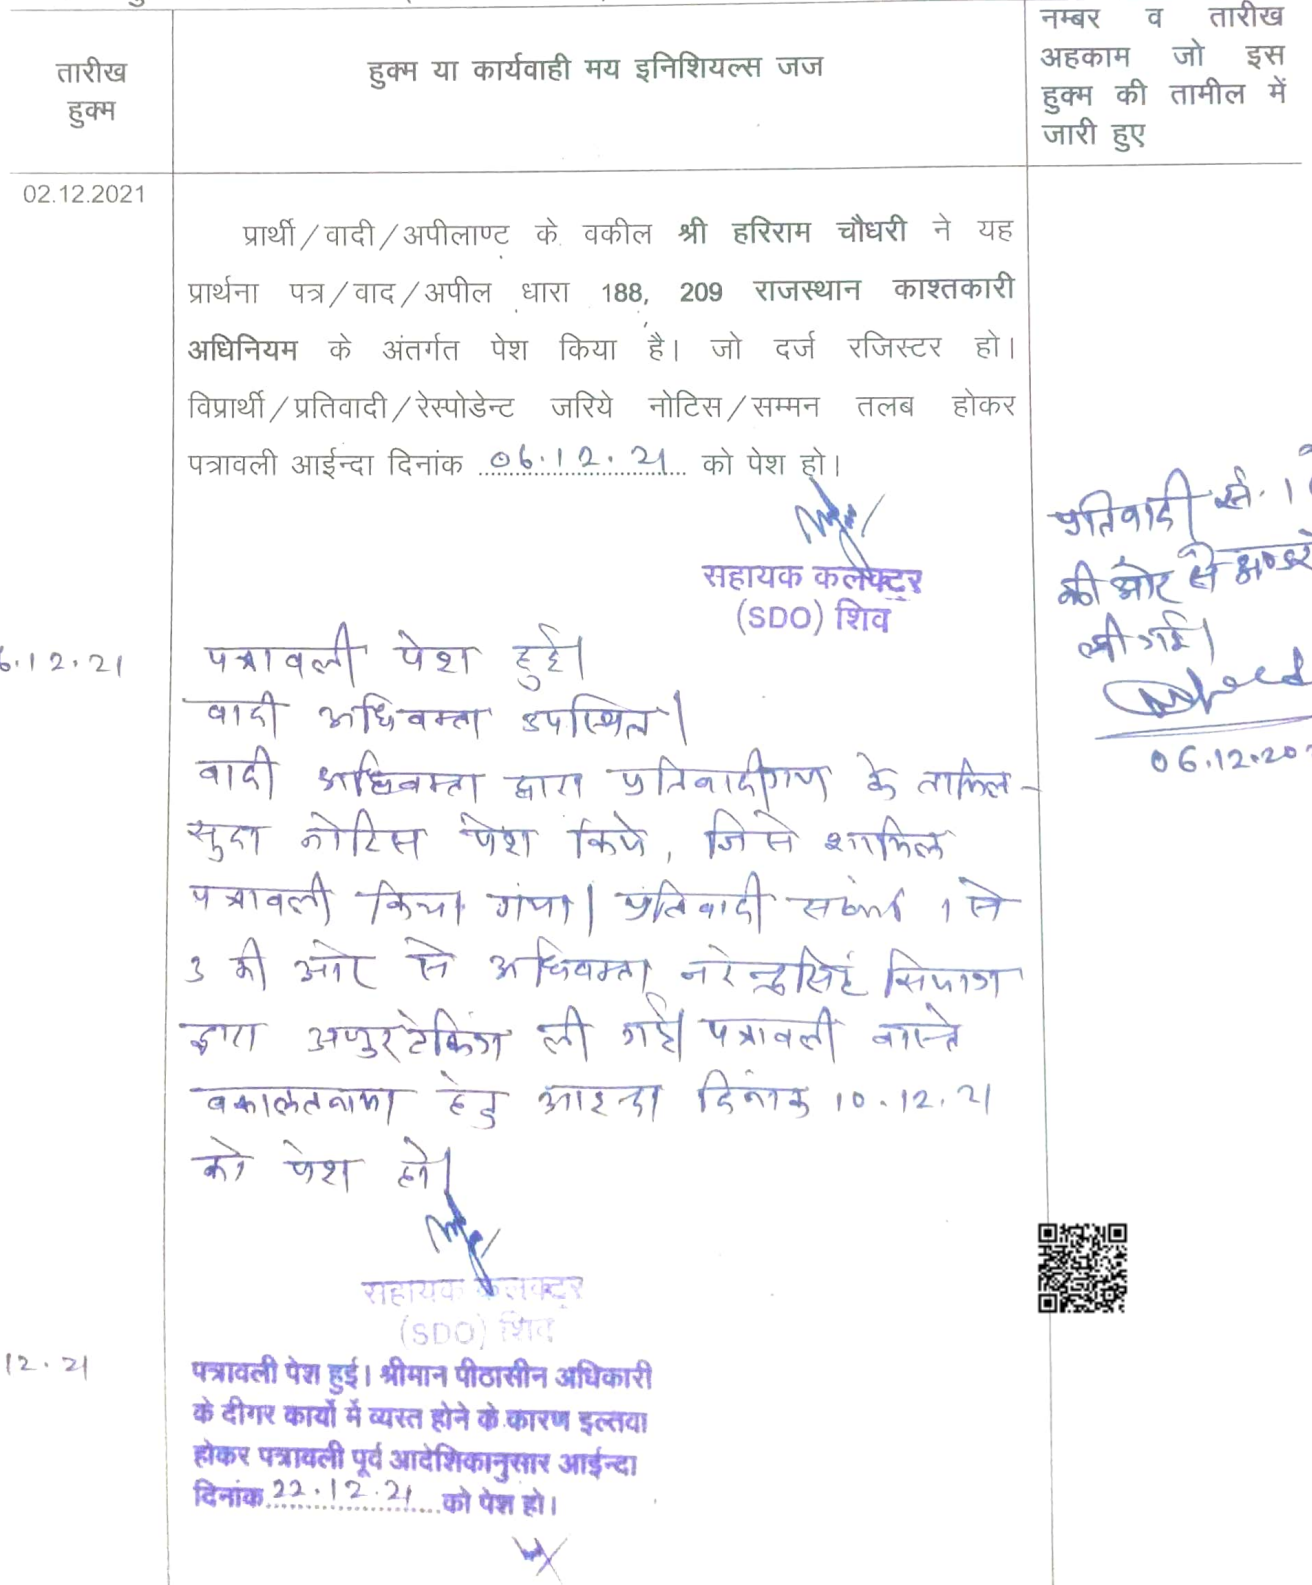 तारीख
हुक्म
हुक्म या कार्यवाही मय इनिशियल्स जज
नम्बर व तारीख
अहकाम जो इस
हुक्म की तामील में
जारी हुए
02.12.2021
प्रार्थी/वादी/अपीलाण्ट के वकील श्री हरिराम चौधरी ने यह
प्रार्थना पत्र/वाद/अपील धारा 188, 209 राजस्थान काश्तकारी
अधिनियम के अंतर्गत पेश किया है। जो दर्ज रजिस्टर हो।
विप्रार्थी/प्रतिवादी/रेस्पोडेन्ट जरिये नोटिस/सम्मन तलब होकर
पत्रावली आईन्दा दिनांक 06.12.21 को पेश हो।
सहायक कलेक्टर
(SDO) शिव
प्रतिवादी सं. 1
की ओर से
ली गई।
06.12.20
6.12.21
पत्रावली पेश हुई।
वादी अधिवक्ता उपस्थित।
वादी अधिवक्ता द्वारा प्रतिवादीगण के तामिल-
सुदा नोटिस पेश किये, जिसे शामिल
पत्रावली किया गया। प्रतिवादी संख्या 1 से
3 की ओर से अधिवक्ता नरेन्द्रसिंह
द्वारा अण्डरटेकिंग ली गई। पत्रावली वास्ते
वकालतनामा हेतु आइन्दा दिनांक 10.12.21
को पेश हो।
सहायक कलेक्टर
(SDO) शिव
12.21
पत्रावली पेश हुई। श्रीमान पीठासीन अधिकारी
के दीगर कार्यो में व्यस्त होने के कारण इल्तवा
होकर पत्रावली पूर्व आदेशिकानुसार आईन्दा
दिनांक 22.12.21 को पेश हो।